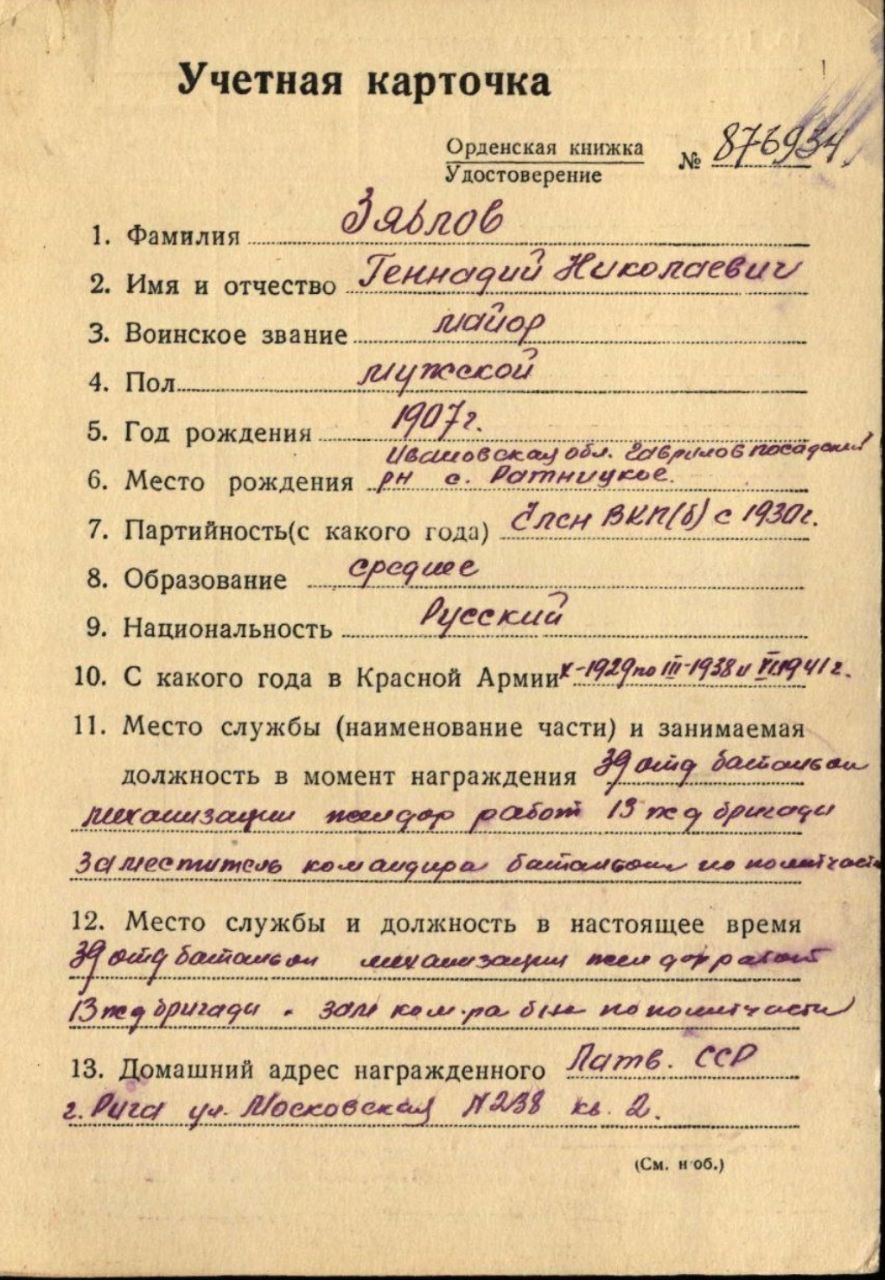 Учетная карточка
Орденская книжка
Удостоверение
№ 876934.
1. Фамилия Зяблов
2. Имя и отчество Геннадий Николаевич
3. Воинское звание майор
4. Пол мужской
5. Год рождения 1907 г.
Ивановская обл. Гаврилов посадский
6. Место рождения рн с. Ратницкое.
7. Партийность(с какого года) Член ВКП(б) с 1930 г.
8. Образование среднее
9. Национальность Русский
10. С какого года в Красной Армии X-1929 по III-1938 и VI 1941 г.
11. Место службы (наименование части) и занимаемая
должность в момент награждения 39 отд батальон
механизации желдор работ 13 жд бригады
Заместитель командира батальона по политчасти
12. Место службы и должность в настоящее время
39 отд батальон механизации желдорработ
13 жд бригады . зам ком-ра б-на по политчасти
13. Домашний адрес награжденного Латв. ССР
г. Рига ул. Московская N 238 кв. 2.
(См. н об.)